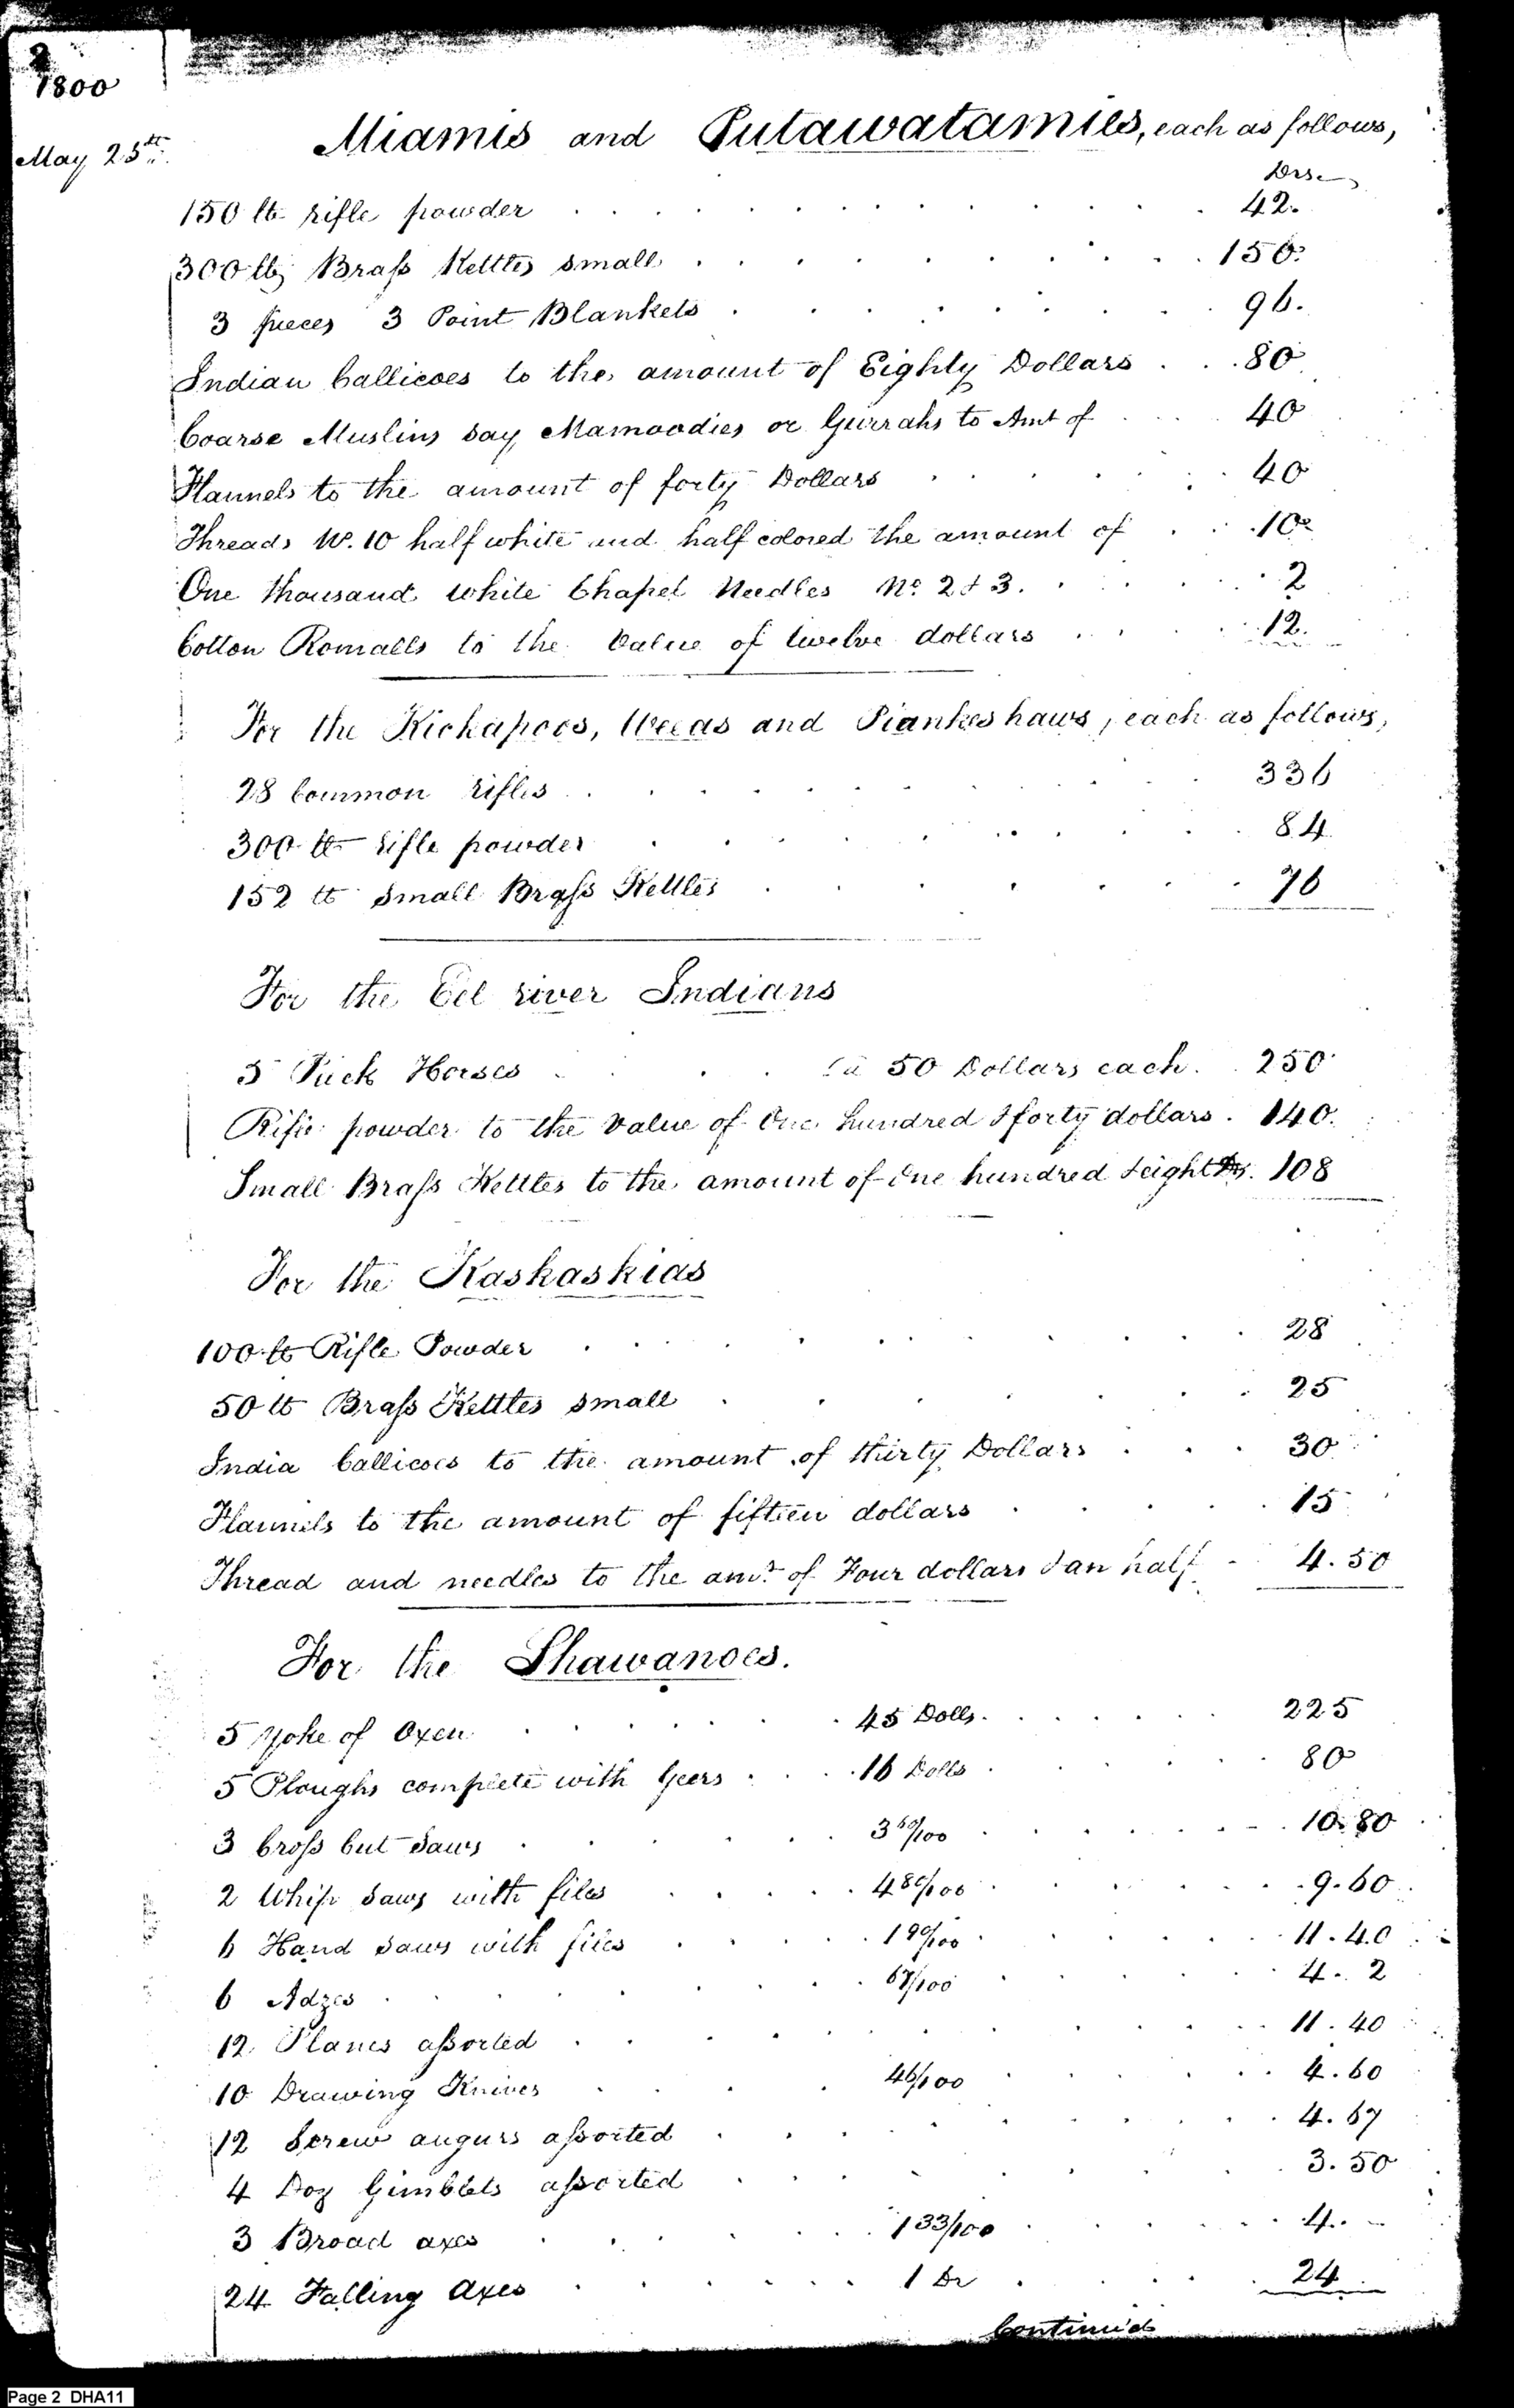 2
1800
May 25th
Miamis and Putawatamies, each as follows,
Drs.
150 lb rifle powder 42.
300 lbs Brass Kettles small 150.
3 pieces 3 Point Blankets 96.
Indian Callicoes to the amount of Eighty Dollars 80
Coarse Muslins say Mamoodies or Gurrahs to Amt of 40
Flannels to the amount of forty Dollars 40
Threads No. 10 half white and half colored the amount of 10
One thousand white Chapel Needles No. 2 & 3. 2
Cotton Romalls to the Value of twelve dollars 12.
For the Kickapoos, Weeas and Piankeshaws, each as follows,
28 Common rifles 336
300 lb rifle powder 84
152 lb small Brass Kettles 76
For the Eel river Indians
5 Pack Horses @ 50 Dollars each. 250
Rifle powder to the value of One hundred & forty dollars. 140.
Small Brass Kettles to the amount of One hundred & eight Drs. 108
For the Kaskaskias
100 lb Rifle Powder 28
50 lb Brass Kettles small 25
India Callicoes to the amount of thirty Dollars 30
Flannels to the amount of fifteen dollars 15
Thread and needles to the amt. of Four dollars & an half 4.50
For the Shawanoes.
5 Yoke of Oxen 45 Dolls. 225
5 Ploughs complete with Geers 16 Dolls 80
3 Cross Cut Saws 3 60/100 10.80
2 Whip Saws with files 4 80/100 9.60
6 Hand Saws with files 1 90/100 11.40
6 Adzes 67/100 4. 2
12 Planes assorted 11.40
10 Drawing Knives 46/100 4.60
12 Screw augurs assorted 4.67
4 Doz Gimblets assorted 3.50
3 Broad axes 1 33/100 4. -
24 Falling Axes 1 Dr 24
Continued
Page 2 DHA11